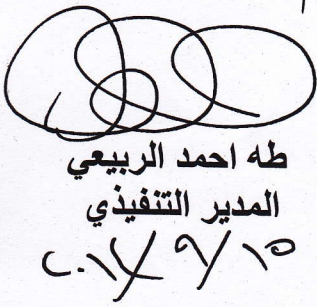 طه احمد الربيعي
المدير التنفيذي
٢٠١٧/٩/١٥